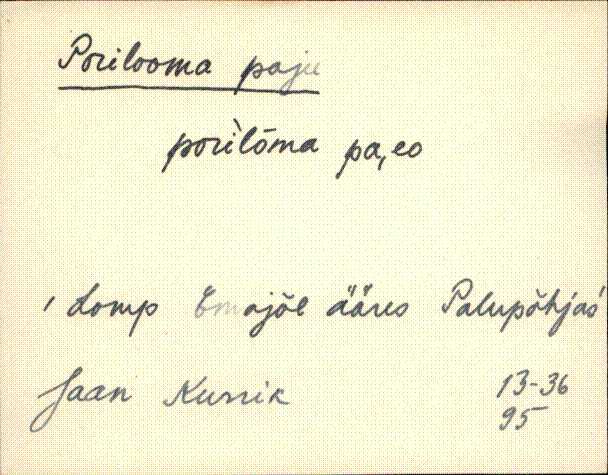 Porilooma paju
pori`lōma pa,eo
, Lomp Emajõe ääres Palupõhjas
Jaan Kurrik 13-36
95